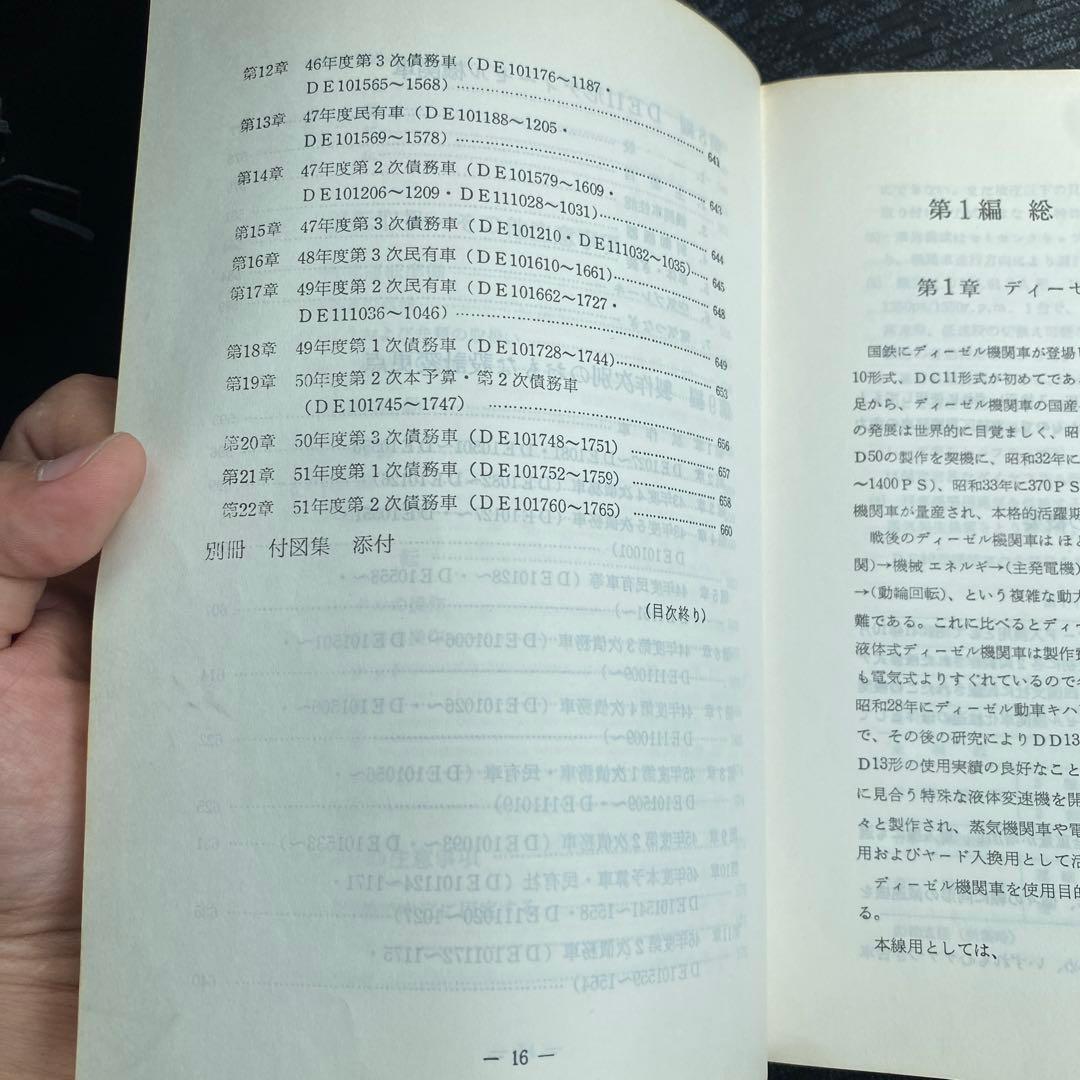 第12章 46年度第3次債務車(DE101176〜1187・
DE101565〜1568)…………641
第13章 47年度民有車(DE101188〜1205・
DE101569〜1578)…………643
第14章 47年度第2次債務車(DE101579〜1609・
DE101206〜1209・DE111028〜1031)…………644
第15章 47年度第3次債務車(DE101210・DE111032〜1035)……645
第16章 48年度第3次民有車(DE101610〜1661)…………648
第17章 49年度第2次民有車(DE101662〜1727・
DE111036〜1046)…………649
第18章 49年度第1次債務車(DE101728〜1744)…………653
第19章 50年度第2次本予算・第2次債務車
(DE101745〜1747) …………656
第20章 50年度第3次債務車(DE101748〜1751)…………657
第21章 51年度第1次債務車(DE101752〜1759)…………658
第22章 51年度第2次債務車(DE101760〜1765)…………660
別冊 付図集 添付
(目次終り)
— 16 —
第1編 総
第1章 ディーゼ
国鉄にディーゼル機関車が登場
10形式、DC11形式が初めてである
足から、ディーゼル機関車の国産
の発展は世界的に目覚ましく、昭
D50の製作を契機に、昭和32年に
〜1400PS)、昭和33年に370PS
機関車が量産され、本格的活躍期
戦後のディーゼル機関車はほと
関)→機械エネルギ→(主発電機)
→(動輪回転)、という複雑な動大
難である。これに比べるとディー
液体式ディーゼル機関車は製作費
も電気式よりすぐれているので
昭和28年にディーゼル動車キハ
で、その後の研究によりDD13
D13形の使用実績の良好なこと
に見合う特殊な液体変速機を開
々と製作され、蒸気機関車や電
用およびヤード入換用として活
ディーゼル機関車を使用目的
る。
本線用としては、